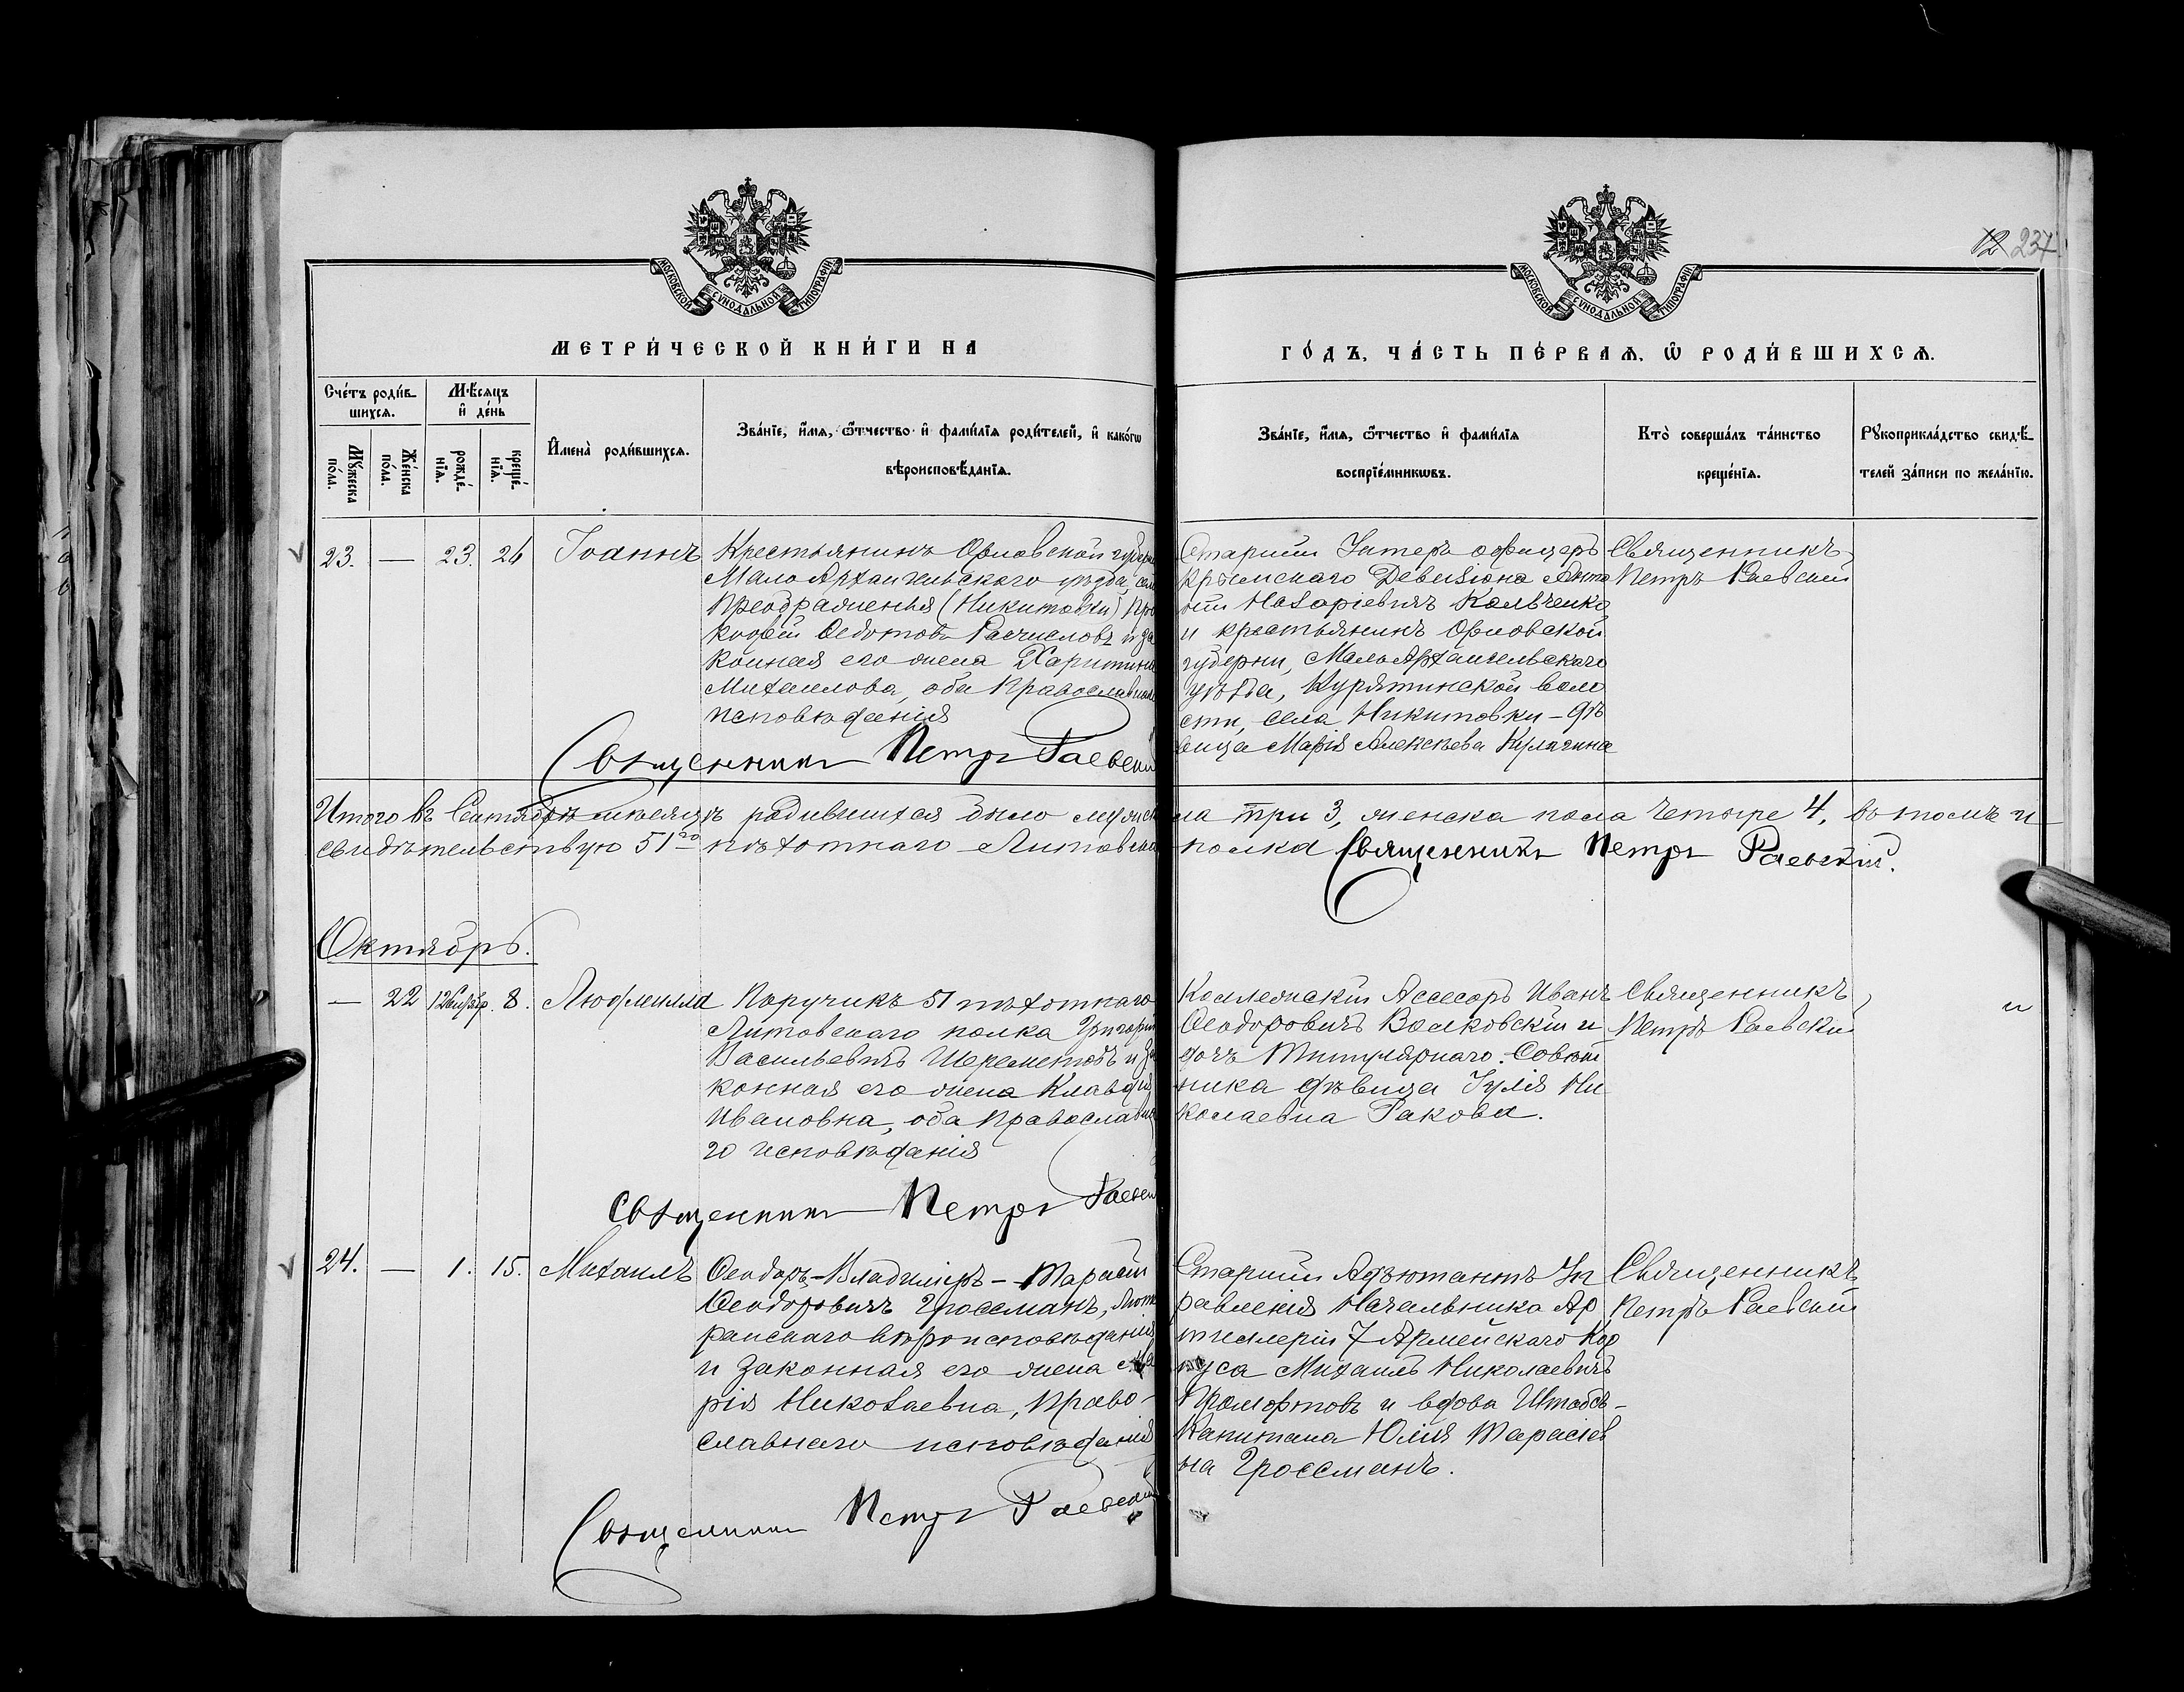 12 237
МОСКОВСКОЙ СѴНОДАЛЬНОЙ ТИПОГРАФІИ
МОСКОВСКОЙ СѴНОДАЛЬНОЙ ТИПОГРАФІИ
МЕТРИ́ЧЕСКОЙ КНИ́ГИ НА
ГО́ДЪ, ЧА́СТЬ ПЕ́РВАѦ, Ѡ҆ РОДИ́ВШИХСѦ.
Сче́тъ роди́в-
шихсѧ.
Мꙋ́жеска
по́ла.
Же́нска
по́ла.
Мѣ́сѧцъ
и҆ де́нь
рожде́-
нїѧ.
креще́-
нїѧ.
И҆мена̀ роди́вшихсѧ.
Зва́нїе, и҆́мѧ, ѻ҆́тчество и҆ фами́лїѧ роди́телей, и҆ како́гѡ
вѣроисповѣ́данїѧ.
Зва́нїе, и҆́мѧ, ѻ҆́тчество и҆ фами́лїѧ
воспрїе́мникѡвъ.
Кто̀ соверша́лъ та́инство
креще́нїѧ.
Рꙋкоприкла́дство свидѣ́-
телей за́писи по жела́нїю.
23. — 23. 26 Іоаннъ
Крестьянинъ Орловской губерн
Мало Архангельскаго уѣзда, села
Преображенья (Никитовки) Про
кофій Ѳедотовъ Расчисловъ и за
конная его жена Харитина
Михаилова, оба Православнаго
исповѣданія
Священникъ Петръ Раевскій
Старшій Унтеръ офицеръ
Крымскаго Дивизіона Анто
ній Назаріевичъ Кольченко
и крестьянинъ Орловской
губерніи, МалоАрхангельскаго
уѣзда, Курятинской воло
сти, села Никитовки – дѣ
вица Марія Алексѣева Кулагина
Священникъ
Петръ Раевскій
Итого въ Сентябрѣ мѣсяцѣ родившихся было мужск
па три 3, женска пола четыре 4, въ томъ и
свидѣтельствую 51го пѣхотнаго Литовскаго
полка Священникъ Петръ Раевскій.
Октябрь.
— 22 12 Сентябр. 8. Людмилла
Поручикъ 51 пѣхотнаго
Литовскаго полка Григорій
Васильевичъ Шереметовъ и за
конная его жена Клавдія
Ивановна, оба Православна
го исповѣданія
Священникъ Петръ Раевскій
Коллежскій Ассесоръ Иванъ
Ѳеодоровичъ Волковскій и
дочь Титулярнаго Совѣт
ника дѣвица Іулія Ни
колаевна Ракова.
Священникъ
Петръ Раевскій
и
24. — 1. 15. Михаилъ
Ѳеодоръ-Владиміръ-Тарасій
Ѳеодоровичъ Гроссманъ, Люте
ранскаго вѣроисповѣданія
и законная его жена Ма
рія Николаевна, Право-
славнаго исповѣданія
Священникъ Петръ Раевскій
Старшій Адъютантъ Уп
равленія Начальника Ар
тиллеріи 7 Армейскаго Кор
пуса Михаилъ Николаевичъ
Промтовъ и вдова Штабсъ-
Капитана Юлія Тарасіев
на Гроссманъ.
Священникъ
Петръ Раевскій